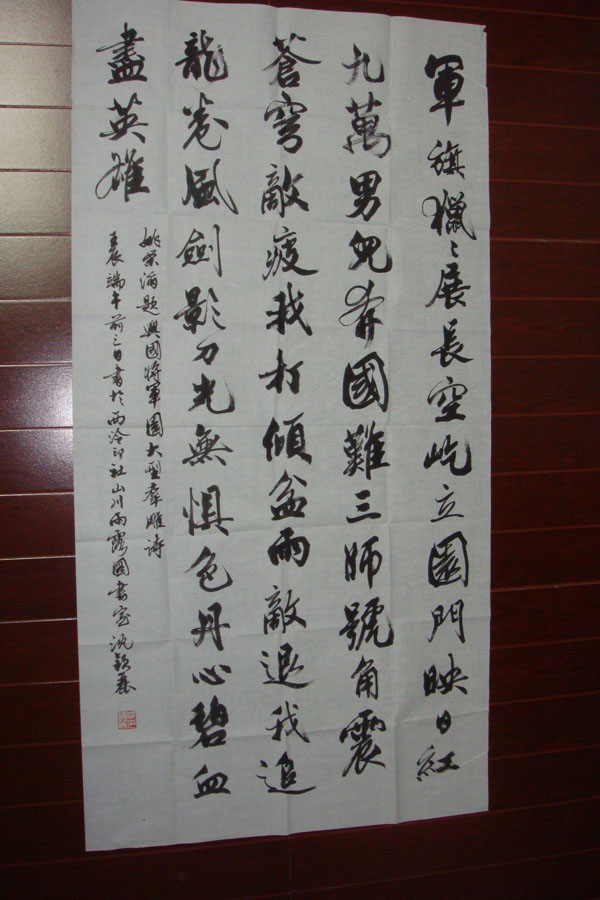 軍旗獵〻展長空屹立園門映日紅
九萬男兒奔國難三師號角震
蒼穹敵疲我打傾盆雨敵退我追
龍卷風劍影刀光無惧色丹心碧血
盡英雄
姚榮滔題興國將軍園大型羣雕诗
壬辰端午前三日書於西泠印社山川雨露圖書室沈颖麗